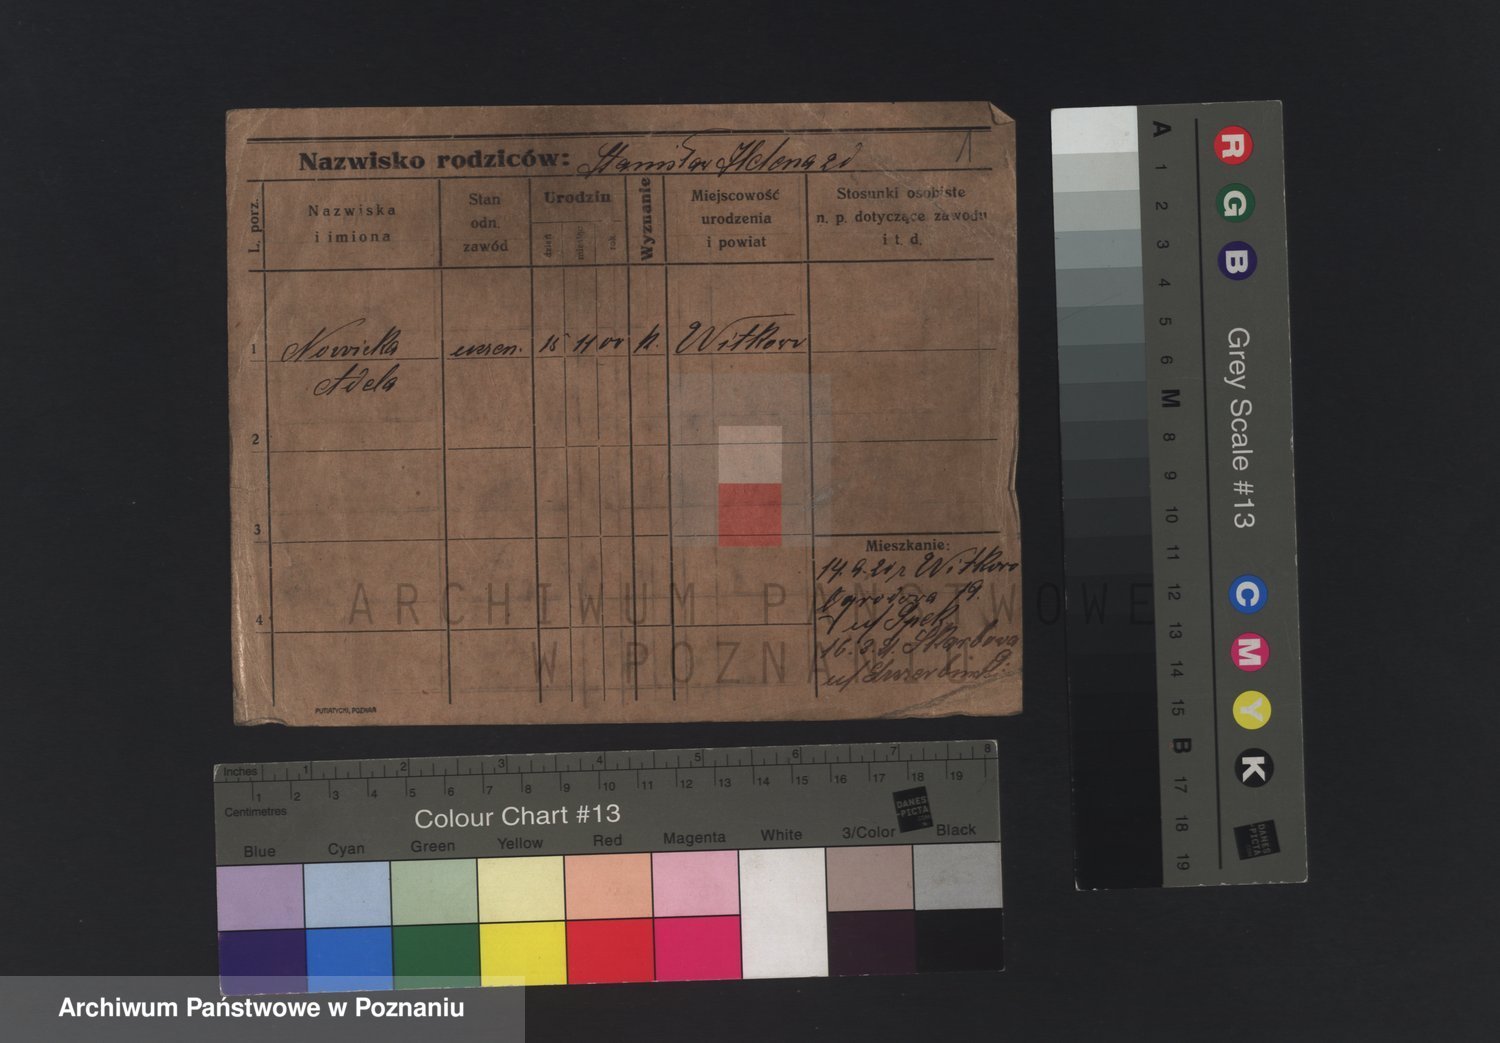 Nazwisko rodziców: Stanisław Helena
1
L. porz.
Nazwiska
i imiona
Stan
odn.
zawód
Urodzin
dzień
miesiąc
rok
Wyznanie
Miejscowość
urodzenia
i powiat
Stosunki osobiste
n. p. dotyczące zawodu
i t. d.
1 Nowicka uczen. 15 11 00 k. Witkowo
Adela
2
3
4
Mieszkanie:
Witkowo
Ogrodowa 19.
u/
16. Skarbowa
u/
PUTIATYCKI, POZNAŃ
ARCHIWUM PAŃSTWOWE
W POZNANIU
Inches 1 2 3 4 5 6 7 8
1 2 3 4 5 6 7 8 9 10 11 12 13 14 15 16 17 18 19
Centimetres
Colour Chart #13
DANES
-PICTA
Blue Cyan Green Yellow Red Magenta White 3/Color Black
A 1 2 3 4 5 6 M 8 9 10 11 12 13 14 15 B 17 18 19
R G B Grey Scale #13 C M Y K
DANES
PICTA
Archiwum Państwowe w Poznaniu